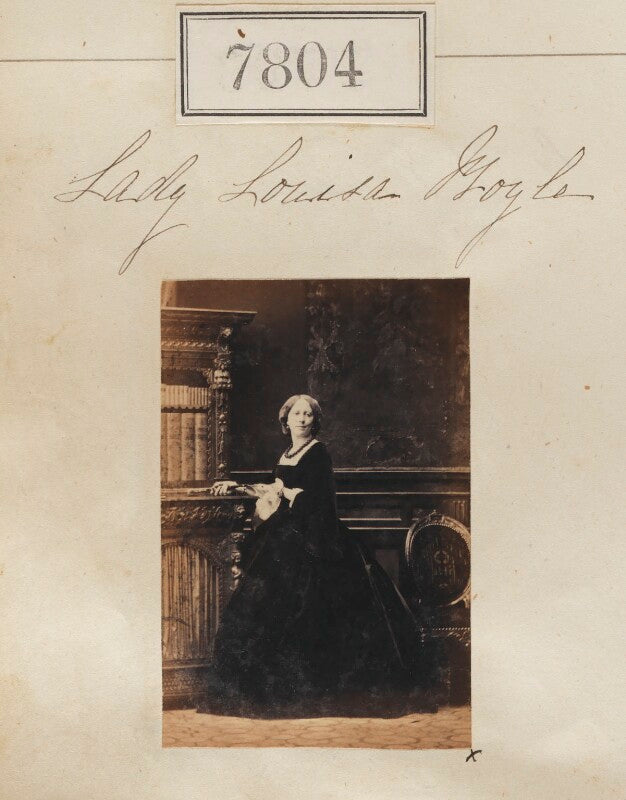 7804
Lady Louisa Boyle
x